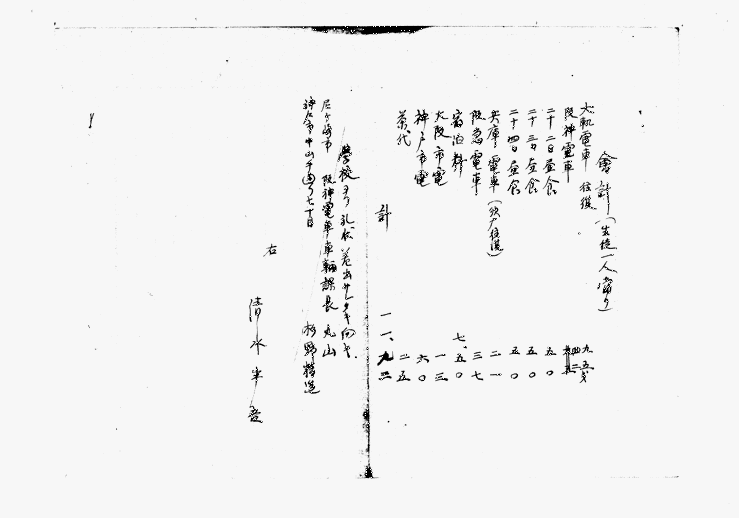 會計（生徒一人當り）
大軌電車 往復 九五
阪神電車 四二
二十二日昼食 五〇
二十三日昼食 五〇
二十四日昼食 五〇
兵庫電車 二一
阪急電車 三七
宿泊料 七、五〇
大阪市電 一三
神戸市電 六〇
茶代 二五
計 一一、九三
學校ヨリ礼状差出サレタキ向キ、
尼ヶ崎市 阪神電車車輛課長 丸山
神戸市中山手通り七丁目 杉野精造
右
清水半吾